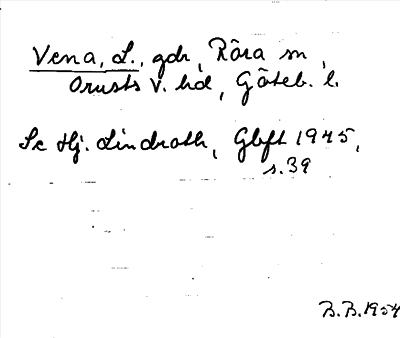 Vena, L., gdr, Röra sn,
Orusts V. hd, Göteb. l.
Se Hj. Lindroth, Gbft 1945,
s. 39
B.B. 1954